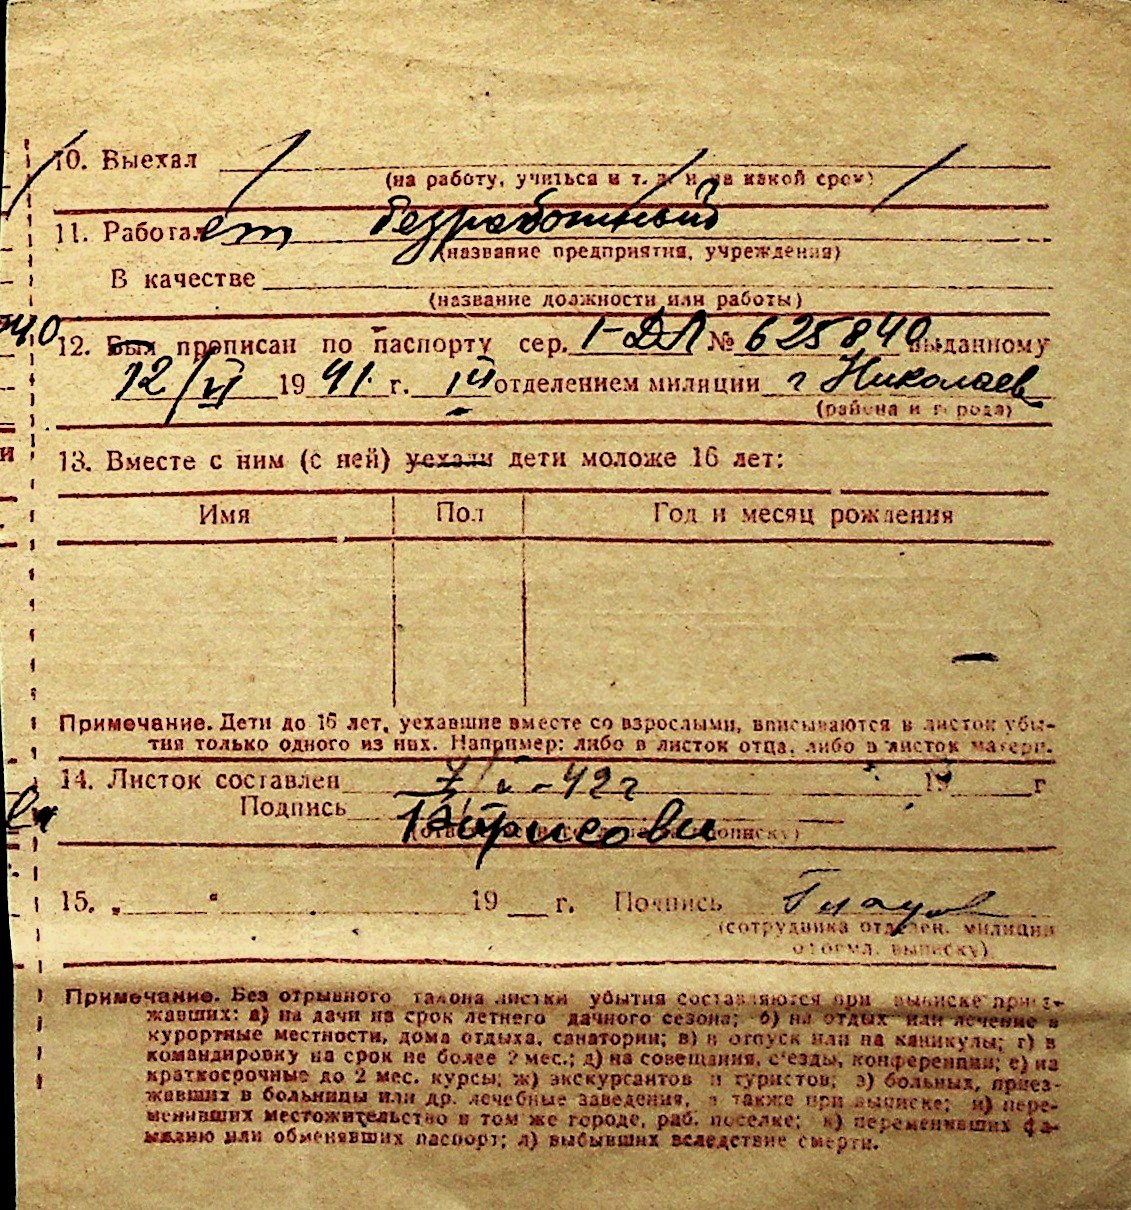 10. Выехал
(на работу, учиться и т. д. и на какой срок)
11. Работает безработный
(название предприятия, учреждения)
В качестве
(название должности или работы)
12. Был прописан по паспорту сер. 1-ДЛ № 625840 выданному
12/VI 1941 г. III отделением милиции г Николаев
(района и города)
13. Вместе с ним (с ней) уехали дети моложе 16 лет:
Имя Пол Год и месяц рождения
—
Примечание. Дети до 16 лет, уехавшие вместе со взрослыми, вписываются в листок убы-
тия только одного из них. Например: либо в листок отца, либо в листок матери.
14. Листок составлен 7/ -42г 19 г
Подпись Борисова
15. „ “ 19 г. Подпись
(сотрудника отделен. милиции
оформл. выписку)
Примечание. Без отрывного талона листки убытия составляются при выписке приез-
жавших: а) на дачи на срок летнего дачного сезона; б) на отдых или лечение в
курортные местности, дома отдыха, санатории; в) в отпуск или на каникулы; г) в
командировку на срок не более 2 мес.; д) на совещания, с'езды, конференции; е) на
краткосрочные до 2 мес. курсы; ж) экскурсантов и туристов; з) больных, приез-
жавших в больницы или др. лечебные заведения, а также при выписке; и) пере-
менивших местожительство в том же городе, раб. поселке; к) переменивших фа-
милию или обменявших паспорт; л) выбывших вследствие смерти.